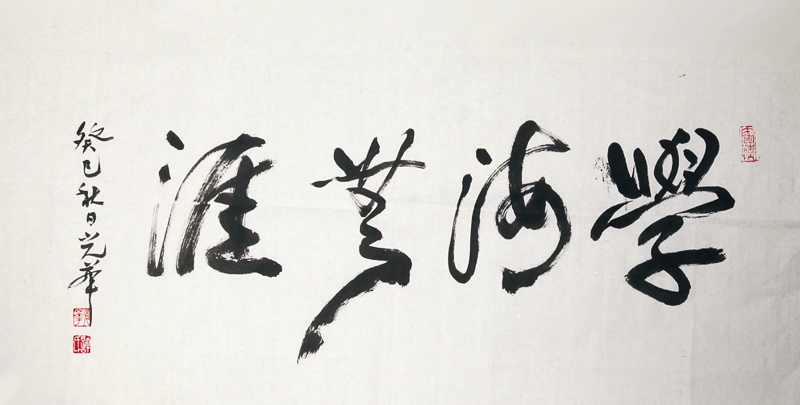 學海無涯
癸巳秋日光華